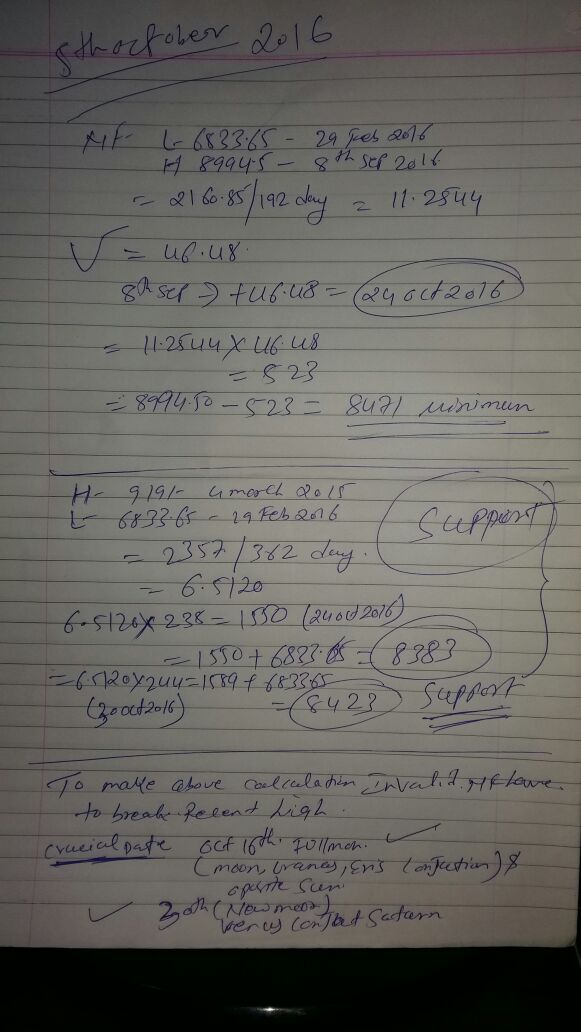 5th october 2016
NF- L- 6833.65 - 29 Feb 2016
H 8994.5 - 8th Sep 2016
= 2160.85/192 day = 11.2544
√ = 46.48
8th Sep => +46.48 = 24 oct 2016
= 11.2544 X 46.48
= 523
= 8994.50 - 523 = 8471 minimum
H- 9191- 4 march 2015
L- 6833.65 - 29 Feb 2016
Support
= 2357/362 day.
= 6.5120
6.5120 X 238 = 1550 (24 oct 2016)
= 1550 + 6833.65 = 8383
= 6.5120 X 244 = 1589 + 6833.65
(30 oct 2016) = 8423 Support
To make above calculation Invalid. NF have
to break Recent high.
Crucial Date oct 16th. Fullmon.
(moon, Uranus, Eris Conjuction) &
oposite Sun.
30th (New moon)
Venus Saturn